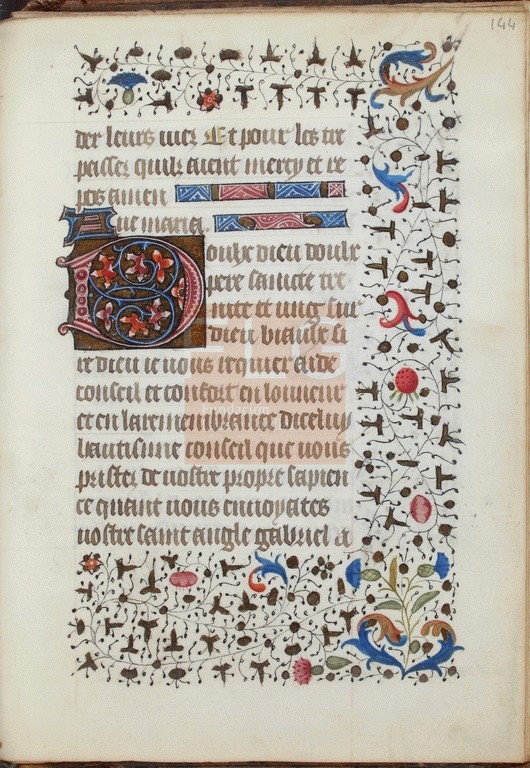 144
der leurs vies Et pour les tre
passez quilz aient mercy et re
pos amen
Aue maria.
Doulx dieu doulx
pere saincte tri
nite et ung seul
dieu biaulx si
re dieu ie vous requier aide
conseil et confort en lonneur
et en la remembrance dicelup
hautisme conseil que vous
pristes de vostre propre sapien
ce quant vous enuoyates
vostre saint angle gabriel a